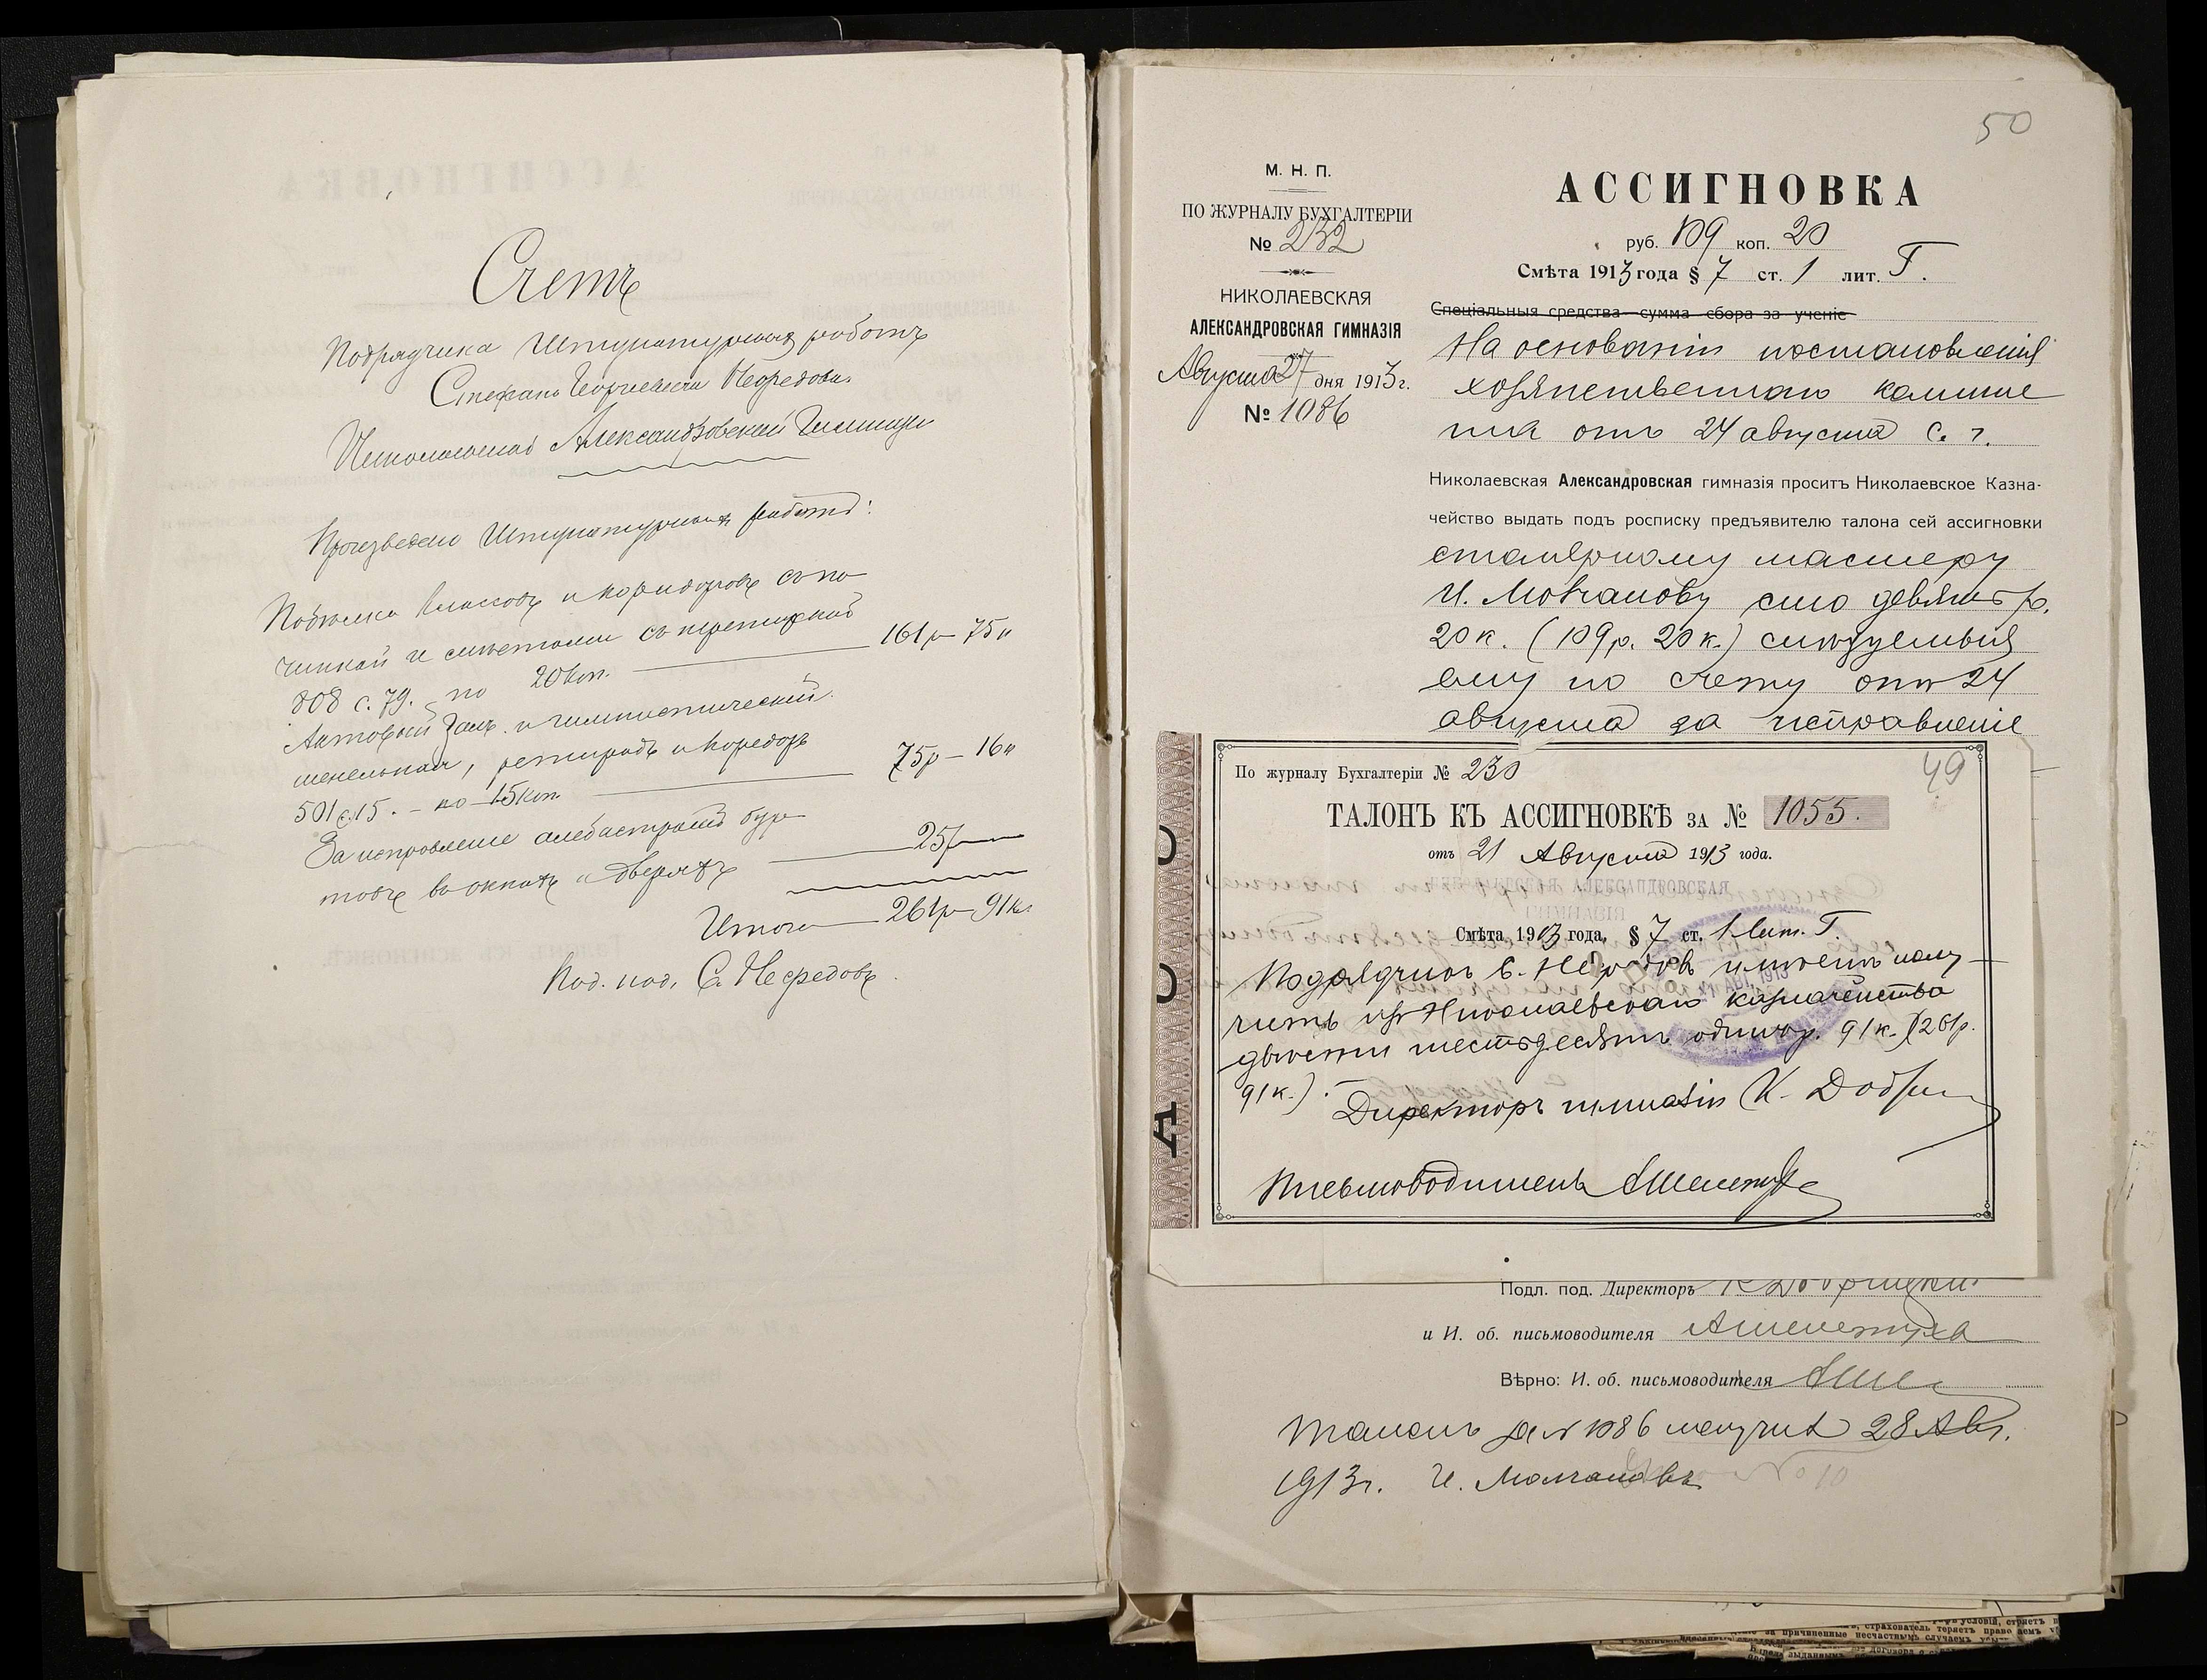 Счетъ
Подрядчика Штукатурныхъ работъ
Стефанъ Георгіевичъ Нефедовъ
Николаевской Александровской Гимназіи
Произведено Штукатурныхъ работъ:
Побѣлка классовъ и коридоровъ съ по-
чинкой и съ перетиркой
808 с. 79. по 20 коп. 161 р 75 к
Актовый залъ и гимнастическій.
шинельная, ретирадъ и коридоръ
501 с. 15. – по 15 коп 75 р – 16 к
За исправленіе алебастромъ
въ окнахъ и дверяхъ 25 р
Итого 261 р 91 к.
Под. под. С. Нефедовъ
50
М. Н. П.
ПО ЖУРНАЛУ БУХГАЛТЕРІИ
№ 232
НИКОЛАЕВСКАЯ
АЛЕКСАНДРОВСКАЯ ГИМНАЗІЯ
Августа 27 дня 1913 г.
№ 1086
АССИГНОВКА
руб. 109 коп. 20
Смѣта 1913 года § 7 ст. 1 лит. Г.
Спеціальныя средства сумма сбора за ученіе
На основаніи постановленія
хозяйственнаго комите
та отъ 24 августа с. г.
Николаевская Александровская гимназія проситъ Николаевское Казна-
чейство выдать подъ росписку предъявителю талона сей ассигновки
столярному мастеру
И. Молчанову сто девять р.
20 к. (109 р. 20 к.) слѣдуемыя
ему по счету отъ 24
августа за исправленіе
По журналу Бухгалтеріи № 230
49
ТАЛОНЪ КЪ АССИГНОВКѢ ЗА № 1055.
отъ 21 Августа 1913 года.
Смѣта 1913 года, § 7 ст. 1 лит. Г.
Подрядчикъ С. Нефедовъ имѣетъ полу-
чить изъ Николаевскаго казначейства
двѣсти шестьдесятъ одинъ р. 91 к. (261 р.
91 к.).
Директоръ гимназіи К.
Письмоводитель АШелепуха
Подл. под. Директоръ
и И. об. письмоводителя АШелепуха
Вѣрно: И. об. письмоводителя
Талонъ за № 1086 получилъ 28 Авг.
1913 г. И. Молчановъ